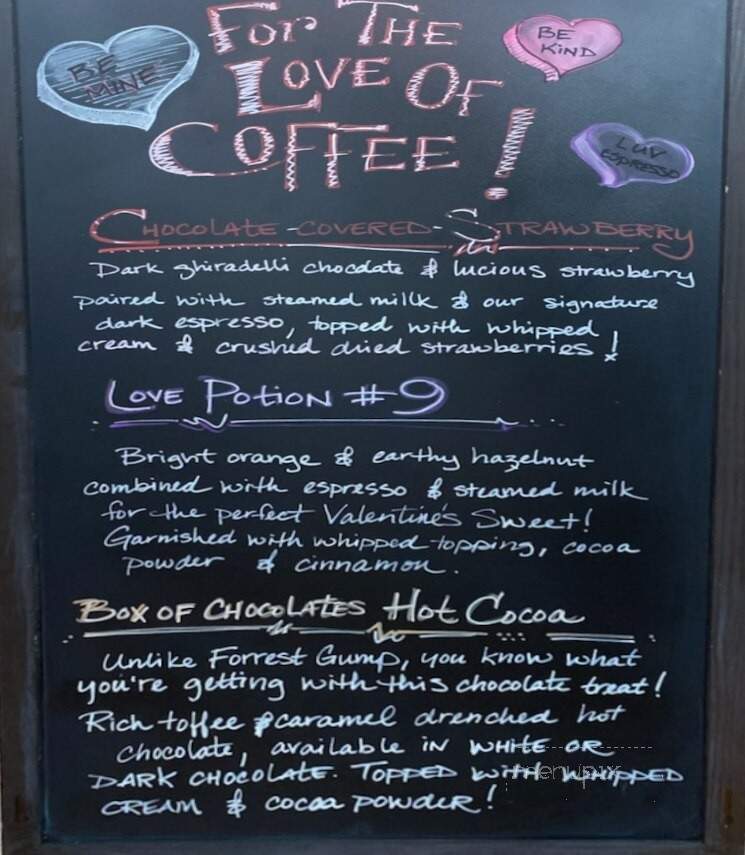 For The
Love Of
Coffee!
Be
Mine
Be
Kind
Luv
Espresso
Chocolate-covered-Strawberry
Dark ghiradelli chocdate & lucious strawberry
paired with steamed millk & our signature
dark espresso, topped with whipped
cream & crushed dried strawberries!
Love Potion #9
Bright orange & earthy hazelnut
combined with espresso & steamed milk
for the perfect Valentine's Sweet!
Garnished with whipped topping, cocoa
powder & cinnamon.
Box of Chocolates Hot Cocoa
Unlike Forrest Gump, you know what
you're getting with this chocolate treat!
Rich toffee & caramel drenched hot
chocolate, available in white or
dark chocolate. Topped with whipped
cream & cocoa powder!
menupix